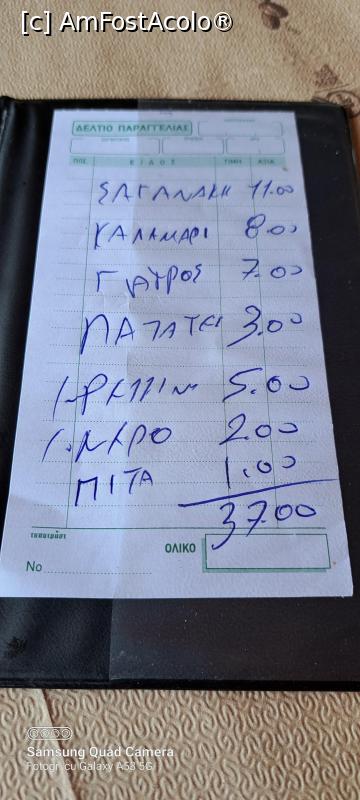 [c] AmFostAcolo®
ΔΕΛΤΙΟ ΠΑΡΑΓΓΕΛΙΑΣ
ΠΟΣ. ΕΙΔΟΣ ΤΙΜΗ ΑΞΙΑ
ΣΑΓΑΝΑΚΙ 11.00
ΚΑΛΑΜΑΡΙ 8.00
ΓΑΥΡΟΣ 7.00
ΠΑΤΑΤΕΣ 3.00
5.00
1. ΝΕΡΟ 2.00
ΠΙΤΑ 1.00
37.00
ΟΛΙΚΟ
No
Samsung Quad Camera
Fotogr. cu Galaxy A53 5G